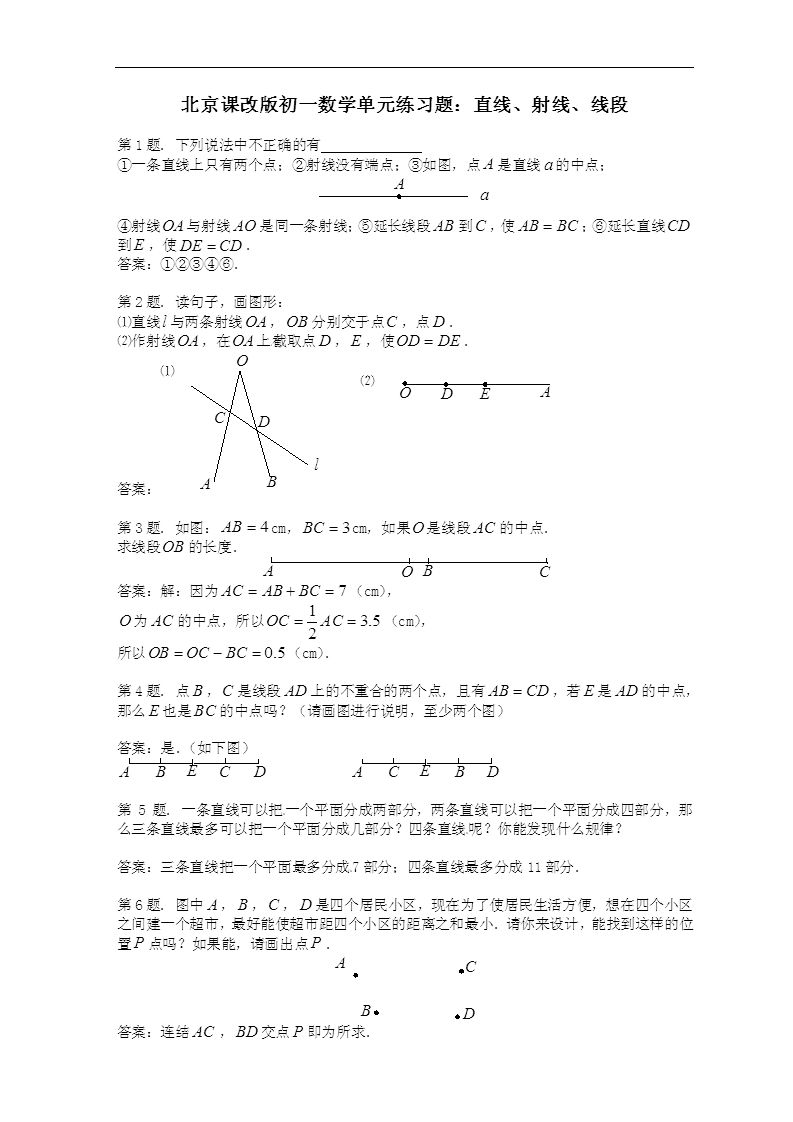 北京课改版初一数学单元练习题：直线、射线、线段
第1题. 下列说法中不正确的有______________
①一条直线上只有两个点；②射线没有端点；③如图，点A是直线a的中点；
A
a
④射线OA与射线AO是同一条射线；⑤延长线段AB到C，使AB = BC；⑥延长直线CD
到E，使DE = CD．
答案：①②③④⑥．
第2题. 读句子，画图形：
⑴直线l与两条射线OA，OB分别交于点C，点D．
⑵作射线OA，在OA上截取点D，E，使OD = DE．
⑴ O
C D
l
A B
⑵
O D E A
答案：
第3题. 如图：AB = 4cm，BC = 3cm，如果O是线段AC的中点．
求线段OB的长度．
A O B C
答案：解：因为AC = AB + BC = 7（cm），
O为AC的中点，所以OC = 1/2 AC = 3.5（cm），
所以OB = OC − BC = 0.5（cm）．
第4题. 点B，C是线段AD上的不重合的两个点，且有AB = CD，若E是AD的中点，
那么E也是BC的中点吗？（请画图进行说明，至少两个图）
答案：是．（如下图）
A B E C D A C E B D
第 5 题. 一条直线可以把一个平面分成两部分，两条直线可以把一个平面分成四部分，那
么三条直线最多可以把一个平面分成几部分？四条直线呢？你能发现什么规律？
答案：三条直线把一个平面最多分成7部分；四条直线最多分成11部分．
第6题. 图中A，B，C，D是四个居民小区，现在为了使居民生活方便，想在四个小区
之间建一个超市，最好能使超市距四个小区的距离之和最小．请你来设计，能找到这样的位
置P点吗？如果能，请画出点P．
A C
B D
答案：连结AC，BD交点P即为所求．